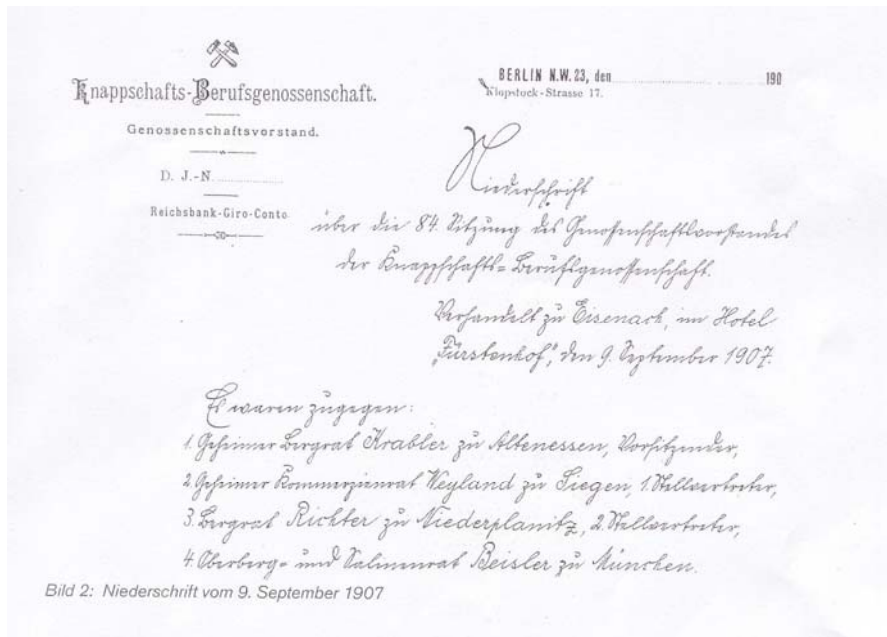 Knappschafts-Berufsgenossenschaft.
Genossenschaftsvorstand.
D. J.-N.
Reichsbank-Giro-Conto
BERLIN N.W. 23, den 190
Klopstock-Strasse 17.
Niederschrift
über die 84. Sitzung des Genossenschaftsvorstandes
der Knappschafts-Berufsgenossenschaft.
Verhandelt zu Eisenach, im Hotel
„Fürstenhof“, den 9. September 1907.
Es waren zugegen:
1. Geheimer Bergrat Krabler zu Altenessen, Vorsitzender,
2. Geheimer Kommerzienrat Weyland zu Siegen, 1. Stellvertreter,
3. Bergrat Richter zu Niederplanitz, 2. Stellvertreter,
4. Oberberg- und Salinenrat Beisler zu München.
Bild 2: Niederschrift vom 9. September 1907